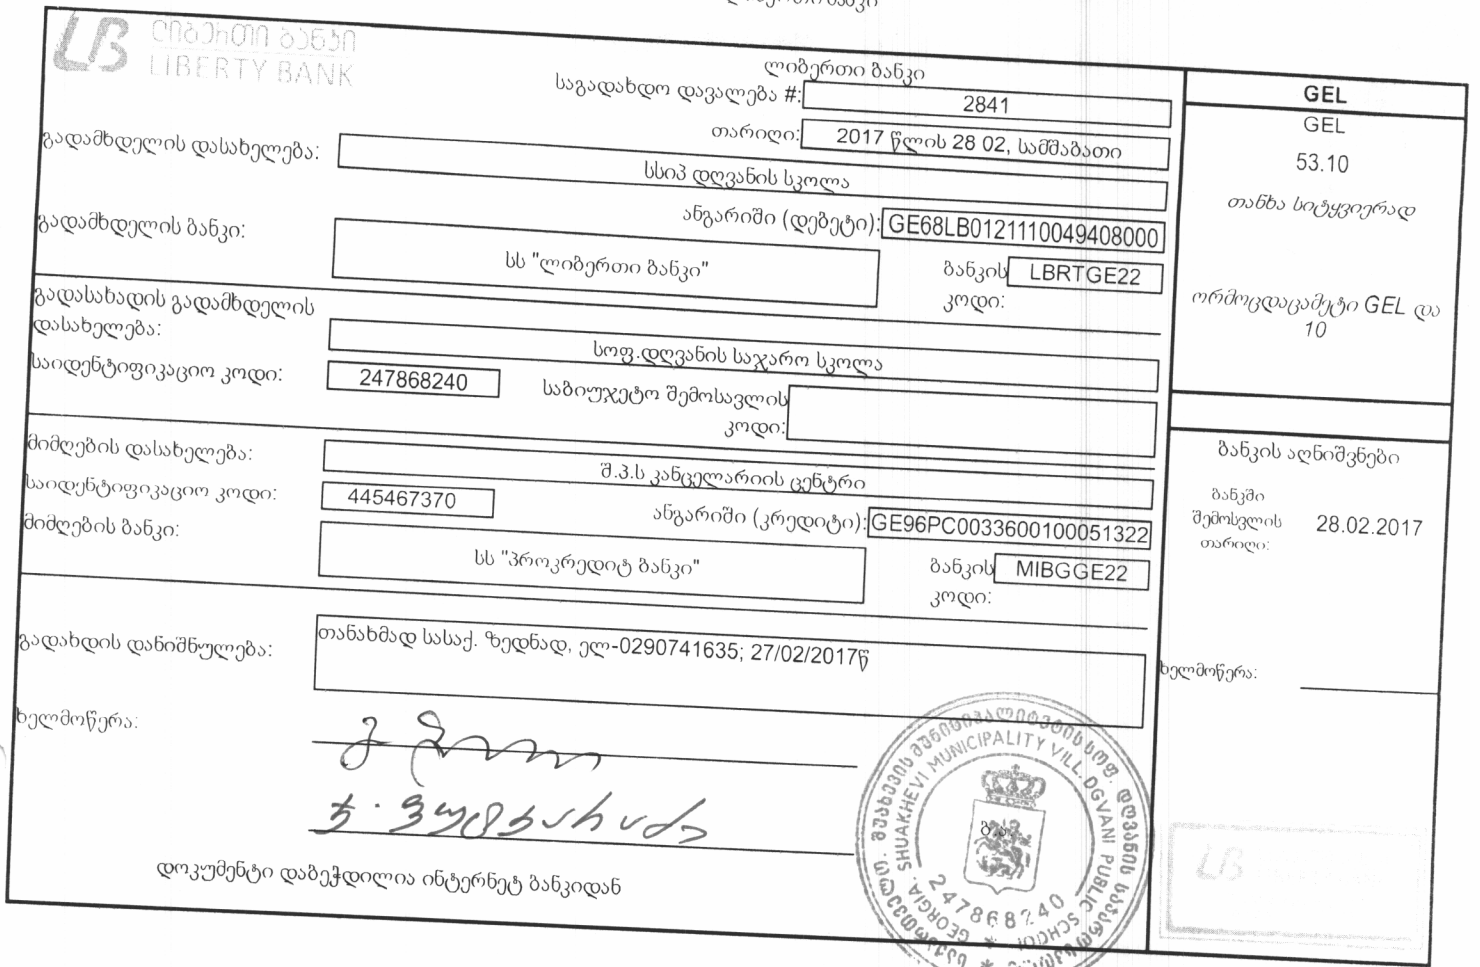 ლიბერთი ბანკი
LIBERTY BANK
ლიბერთი ბანკი
საგადახდო დავალება #: 2841
თარიღი: 2017 წლის 28 02, სამშაბათი
გადამხდელის დასახელება: სსიპ დღვანის სკოლა
ანგარიში (დებეტი): GE68LB0121110049408000
გადამხდელის ბანკი: სს "ლიბერთი ბანკი"
ბანკის კოდი: LBRTGE22
გადასახადის გადამხდელის
დასახელება: სოფ.დღვანის საჯარო სკოლა
საიდენტიფიკაციო კოდი: 247868240
საბიუჯეტო შემოსავლის
კოდი:
მიმღების დასახელება: შ.პ.ს კანცელარიის ცენტრი
საიდენტიფიკაციო კოდი: 445467370
ანგარიში (კრედიტი): GE96PC0033600100051322
მიმღების ბანკი: სს "პროკრედიტ ბანკი"
ბანკის კოდი: MIBGGE22
გადახდის დანიშნულება: თანახმად სასაქ. ზედნად, ელ-0290741635; 27/02/2017წ
ხელმოწერა:
დოკუმენტი დაბეჭდილია ინტერნეტ ბანკიდან
GEL
GEL
53.10
თანხა სიტყვიერად
ორმოცდაცამეტი GEL და
10
ბანკის აღნიშვნები
ბანკში
შემოსვლის
თარიღი:
28.02.2017
ხელმოწერა:
შუახევის მუნიციპალიტეტის სოფ. დღვანის საჯარო სკოლა
GEORGIA. SHUAKHEVI MUNICIPALITY VILL. DGVANI PUBLIC SCHOOL
ბ.ა.
247868240
LB